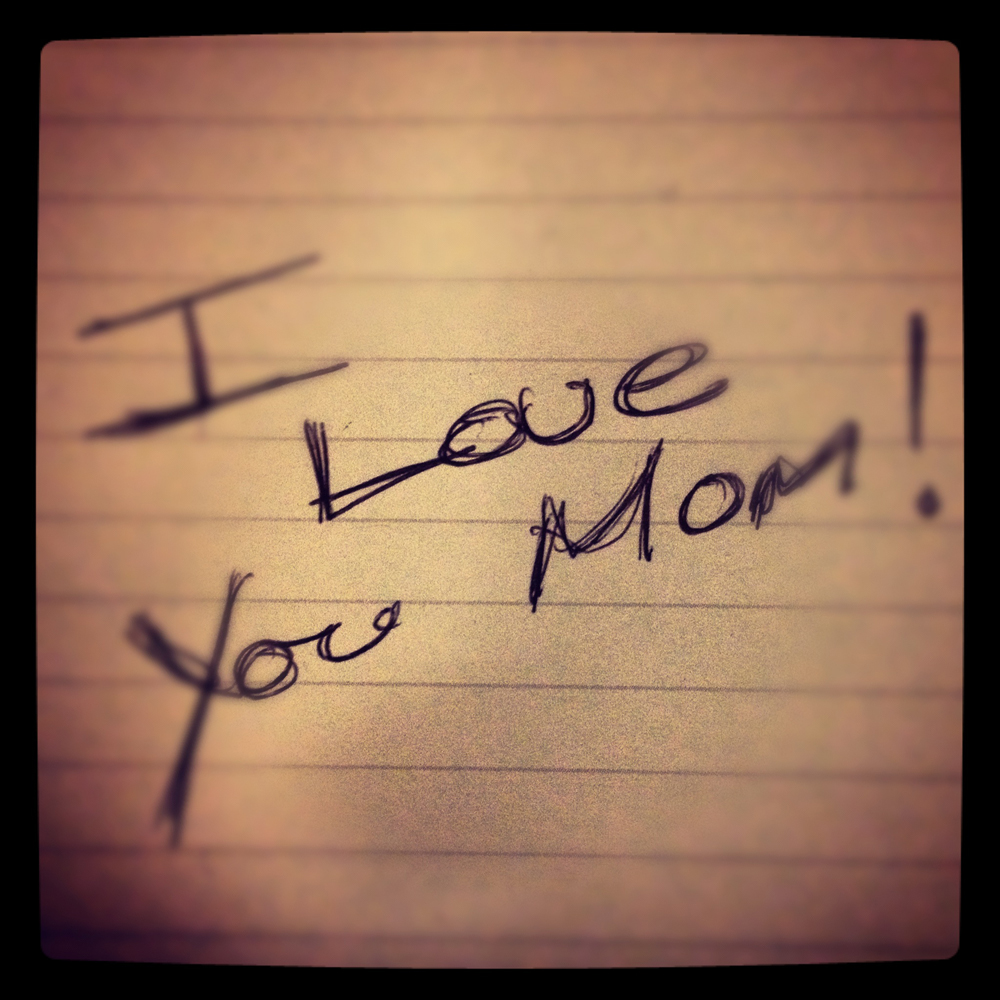 I Love
You Mom!